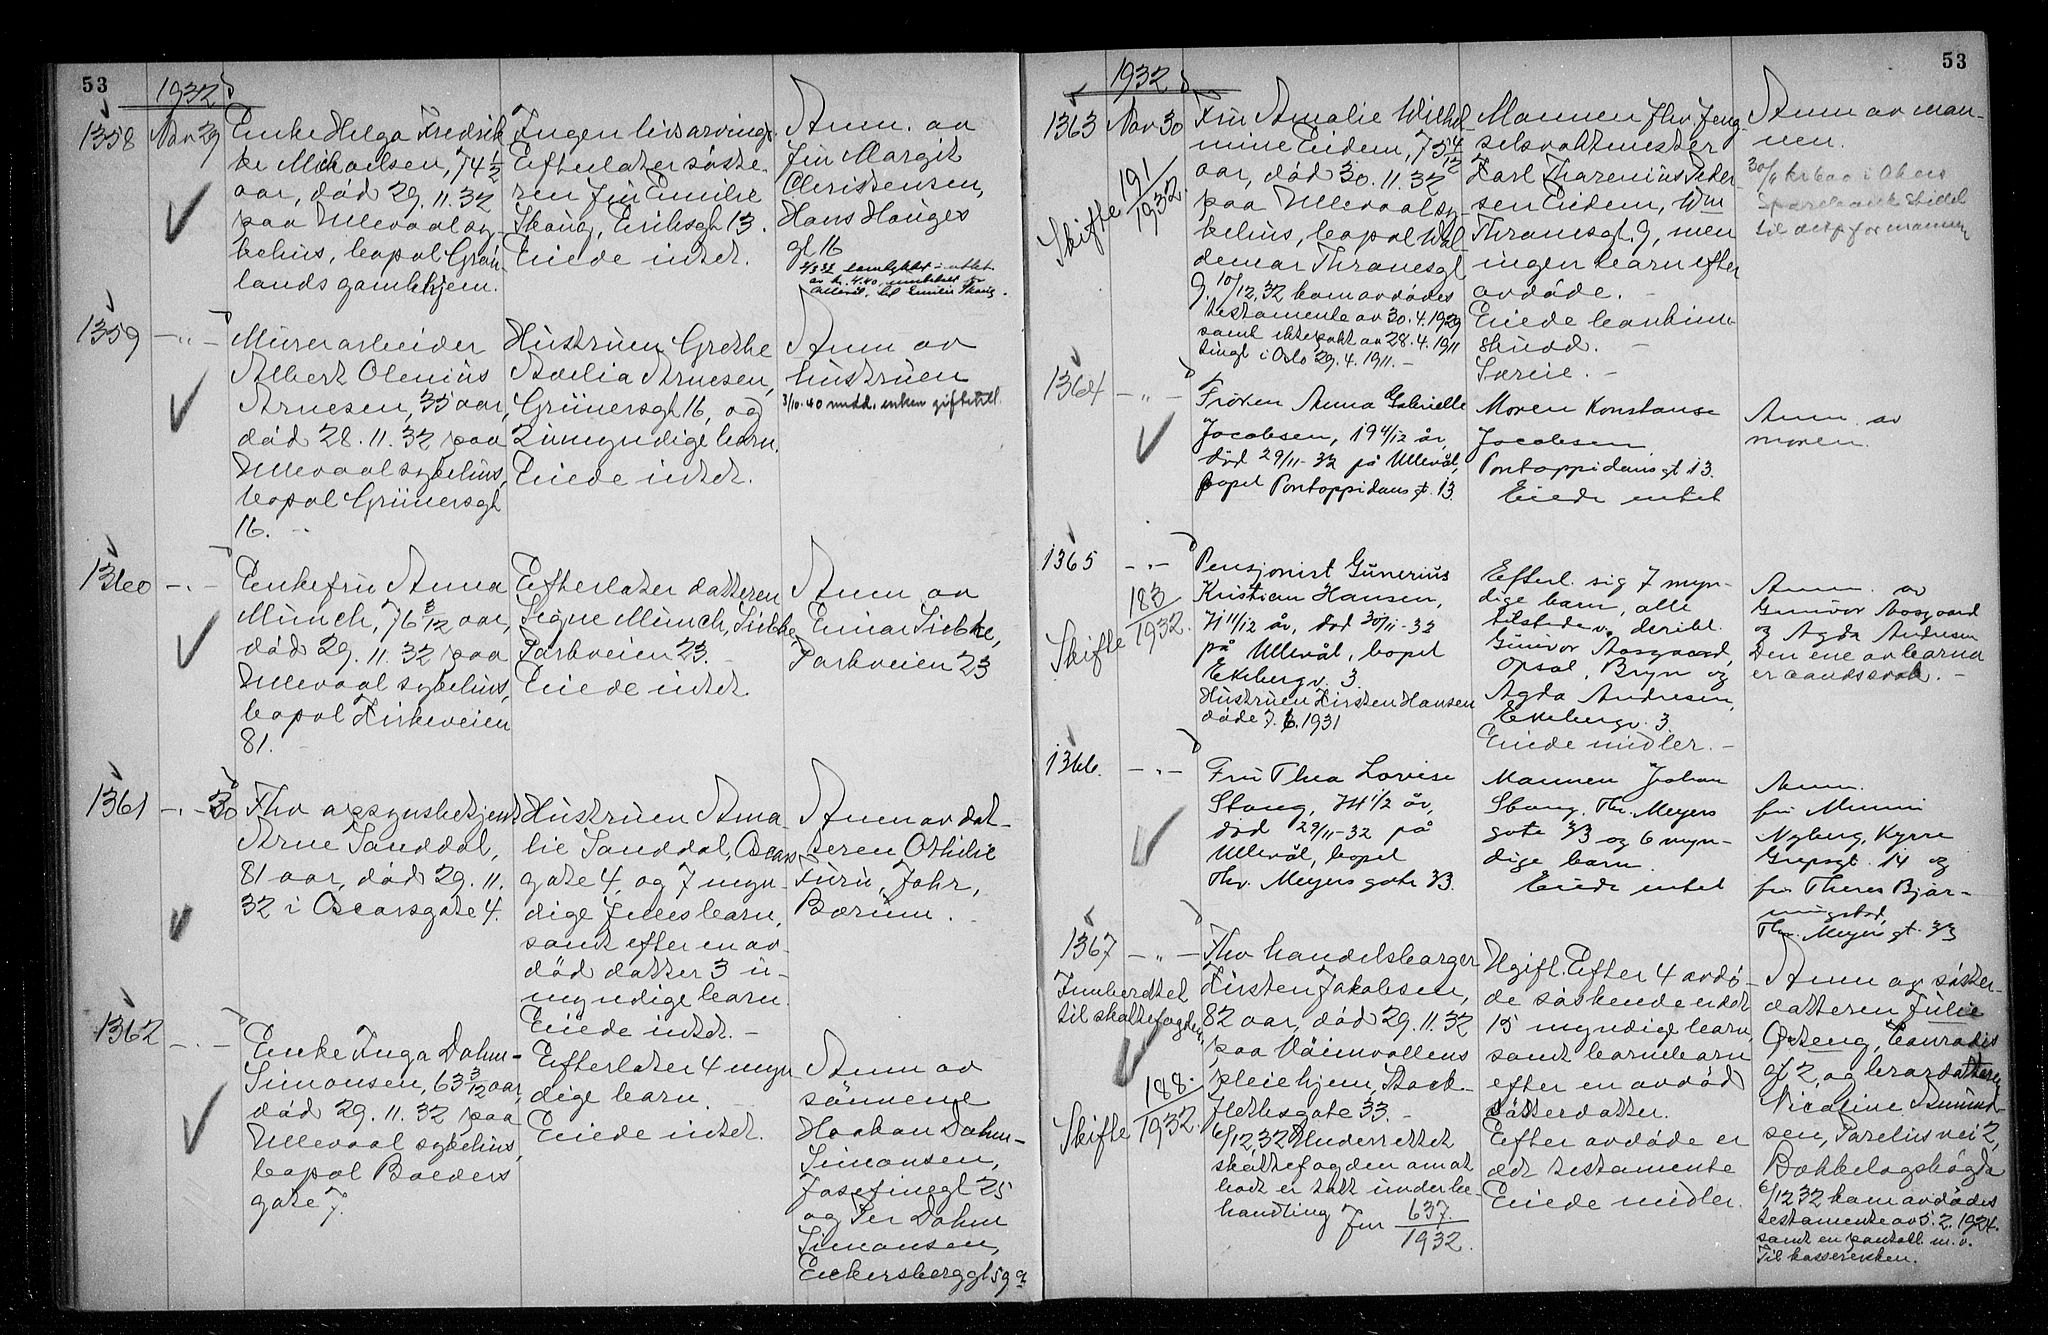 53
1932
1358
Nov 29
Enke Helga Fredrik-
ke Michaelsen, 74 1/2
aar, död 29.11.32
paa Ullevaal sy-
kehus, bopæl Grön-
lands gamlehjem.
Ingen livsarving.
Efterlater söste-
ren fru Emilie
Skaug, Eriksgt 13.
Eiede intet.
Anm. av
fru Margit
Christensen,
Hans Hauges
gt 16
1359
- " -
Murerarbeider
Albert Olenius
Arnesen, 35 aar,
död 28.11.32 paa
Ullevaal sykehus,
bopæl Grünersgt
16. -
Hustruen Grethe
Aselia Arnesen,
Grünersgt 16, og
2 umyndige barn.
Eiede intet.
Anm av
hustruen
3/10.40 medd. enken giftetill.
1360
- " -
Enkefru Anna
Münch, 76 3/12 aar,
död 29.11.32 paa
Ullevaal sykehus,
bopæl Kirkeveien
81. -
Efterlater datteren
Signe Münch,
Parkveien 23. -
Eiede intet.
Anm av
Einar
Parkveien 23
1361
- " - 30
Fhv opsynsbetjent
Arne Sanddal,
81 aar, död 29.11.
32 i Oscarsgate 4.
Hustruen Ama-
lie Sanddal, Oscars
gate 4, og 7 myn
dige felles barn,
samt efter en av-
död datter 3 u-
myndige barn.
Eiede intet. -
Anm av dat-
teren Othilie
Furu, Jahr,
Bærum. -
1362
- " -
Enke Inga Dahm-
Simonsen, 63 3/12 aar,
död 29.11.32 paa
Ullevaal sykehus,
bopæl Boeders
gate 7.
Efterlater 4 myn
dige barn. -
Eiede intet.
Anm av
sönnene
Haakon Dahm-
Simonsen,
Josefinegt 25
og Per Dahm
Simonsen,
Eckersberggt 59 a
53
1932
1363
Nov 30
Skifte 191/1932.
Fru Amalie Wilhel-
mine Eidem, 75 4/12
aar, död 30.11.32
paa Ullevaal sy-
kehus, bopæl Wal-
demar Thranesgt
9. 10/12.32 kom avdödes
testamente av 30.4.1929
samt ektepakt av 28.4.1911
tingl i Oslo 29.4.1911. -
Mannen fhv feng-
selsvaktmester
Karl Tharenius Peder-
sen Eidem, Wm
Thranesgt. 9, men
ingen barn efter
avdöde. -
Eiede bankinn-
skudd. -
Særeie. -
Anm av man-
nen.
1364
- " -
Fröken Anna Gabrielle
Jacobsen, 19 4/12 år,
död 29/11-32 på Ullevål,
bopel Pontoppidans gt. 13.
Moren Konstanse
Jacobsen
Pontoppidans gt 13.
Eiede intet
Anm. av
moren.
1365
- " -
Skifte 183/1932.
Pensjonist Gunerius
Kristian Hansen,
71 11/12 år, död 30/11-32
på Ullevål, bopel
Ekebergv. 3.
Hustruen Kirsten Hansen
döde 7.6.1931
Efterl. sig 7 myn-
dige barn, alle
tilstede v. deribl.
Gunvor Aasgaard,
Opsal, Bryn og
Agda Andresen,
Ekebergv. 3.
Eiede midler. -
Anm. av
Gunvor Aasgaard
og Agda Andresen
Den ene av barna
er aandssvak. -
1366.
- " -
Fru Thea Lovise
Stang, 74 1/2 år,
död 29/11-32 på
Ullevål, bopel
Thv. Meyers gate 33.
Mannen Johan
Stang, Thv. Meyers
gate 33 og 6 myn-
dige barn.
Eiede intet
Anm.
fru Minni
Nyberg, Kyrre
Grepsgt. 14 og
fru Theres Bjør-
ningstad,
Thv. Meyers gt. 33
1367
- " -
Innberettet
til skattefogden
Skifte 188/1932.
Fhv handelsborger
Kirsten Jakobsen,
82 aar, död 29.11.32
paa Våimvollens
pleiehjem, Stock-
flethsgate 33. -
6/12.32 Underrettet
skattefogden om at
boet er tatt under be-
handling Jnr 637/1932.
Ugift. Efter 4 avdö-
de söskende er det
15 myndige barn,
samt barnebarn
efter en avdöd
sösterdatter.
Efter avdöde er
det testamente
Eiede midler.
Anm av söster-
datteren Julie
Östeng, Conradis
gt 2, og brordatteren
Nicoline Amund-
sen, Sarelius vei 2,
Bekkelagshögda
6/12 32 kom avdödes
testamente av 5.2.1924.
samt en kontobl. m.v.
Til kasserersken.